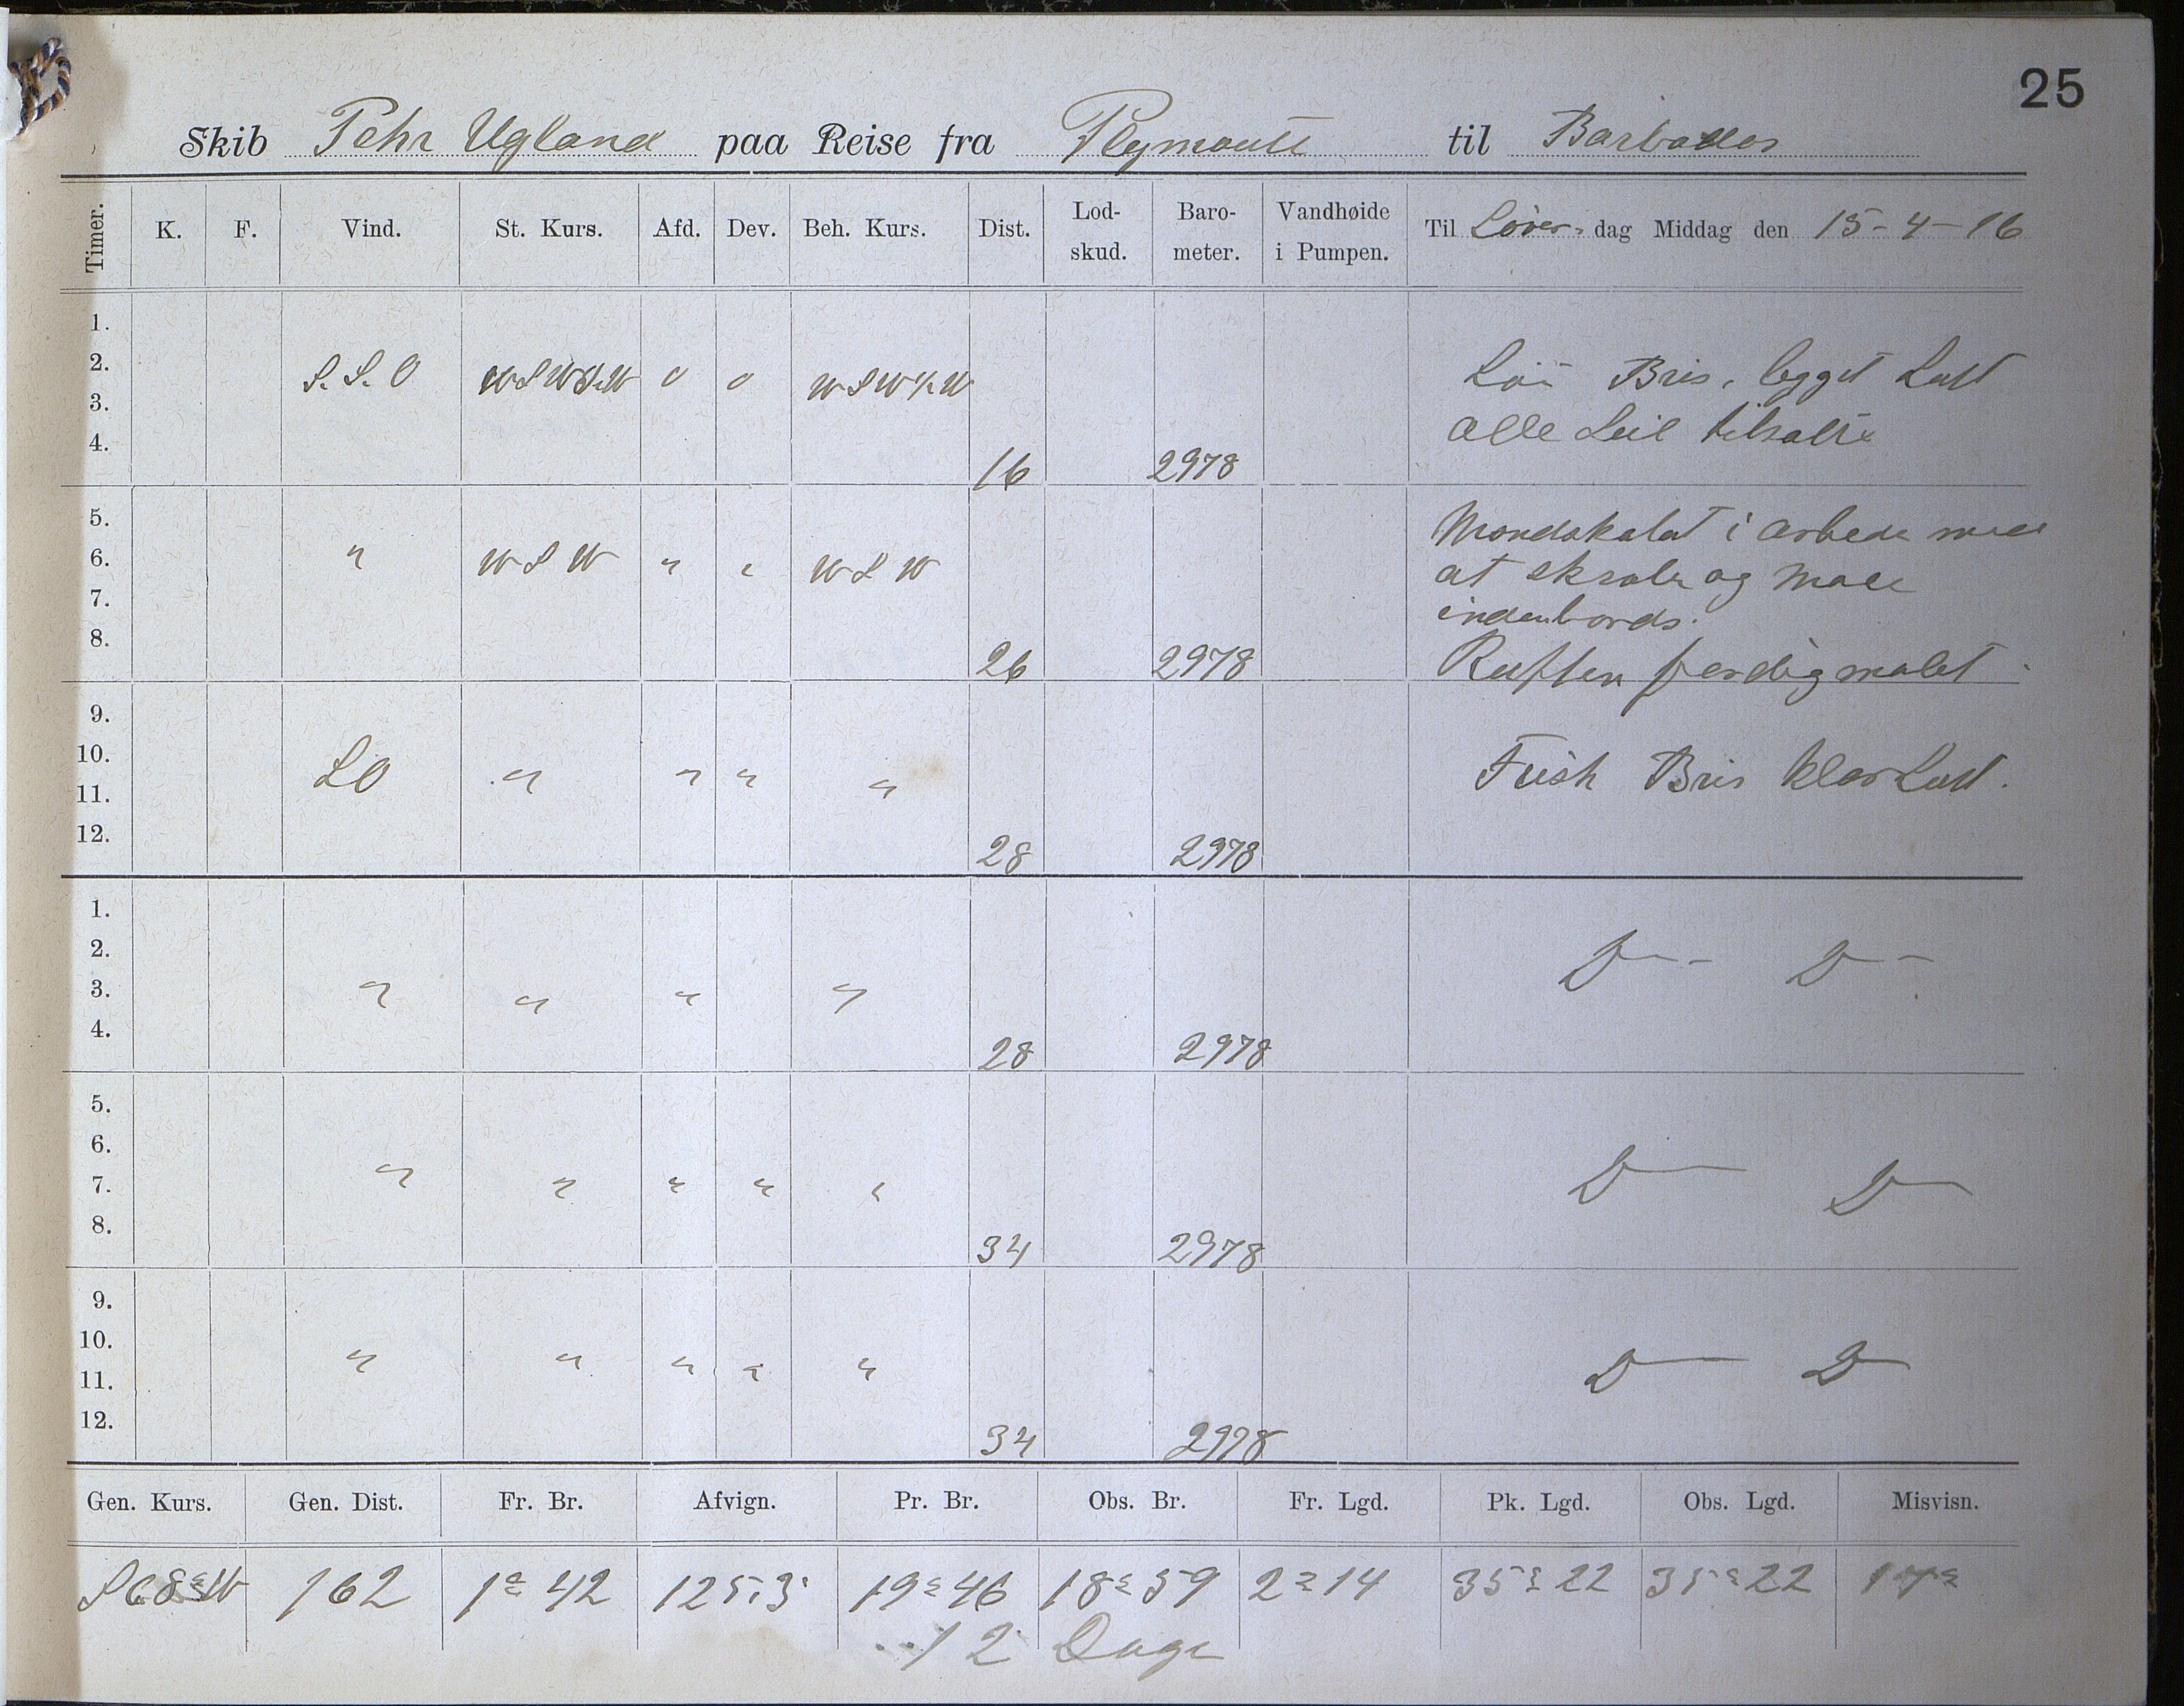 25
Skib Pehr Ugland paa Reise fra Plymouth til Barbados
Timer. K. F. Vind. St. Kurs. Afd. Dev. Beh. Kurs. Dist. Lod-skud. Baro-meter. Vandhøide i Pumpen. Til Löver dag Middag den 15-4-16
1.
2. S.S.O WSW½W 0 0 WSW½W Löi Bris, legget Luft
3.
4. 16 2978 alle Seil tilsatte
5. Mandskabet i arbeide med
6. " WSW " " WSW at skrabe og male
7. indenbords.
8. 26 2978 Ruffen ferdig malet.
9.
10. SO " " " " Frisk Bris klar Luft.
11.
12. 28 2978
1.
2. D - D -
3. " " " "
4. 28 2978
5.
6.
7. " " " " " D - D -
8. 34 2978
9.
10.
11. " " " " " D - D -
12. 34 2978
Gen. Kurs. Gen. Dist. Fr. Br. Afvign. Pr. Br. Obs. Br. Fr. Lgd. Pk. Lgd. Obs. Lgd. Misvisn.
S68°W 162 1° 42 125,3 19° 46 18° 59 2° 14 35° 22 35° 22
12 Dage